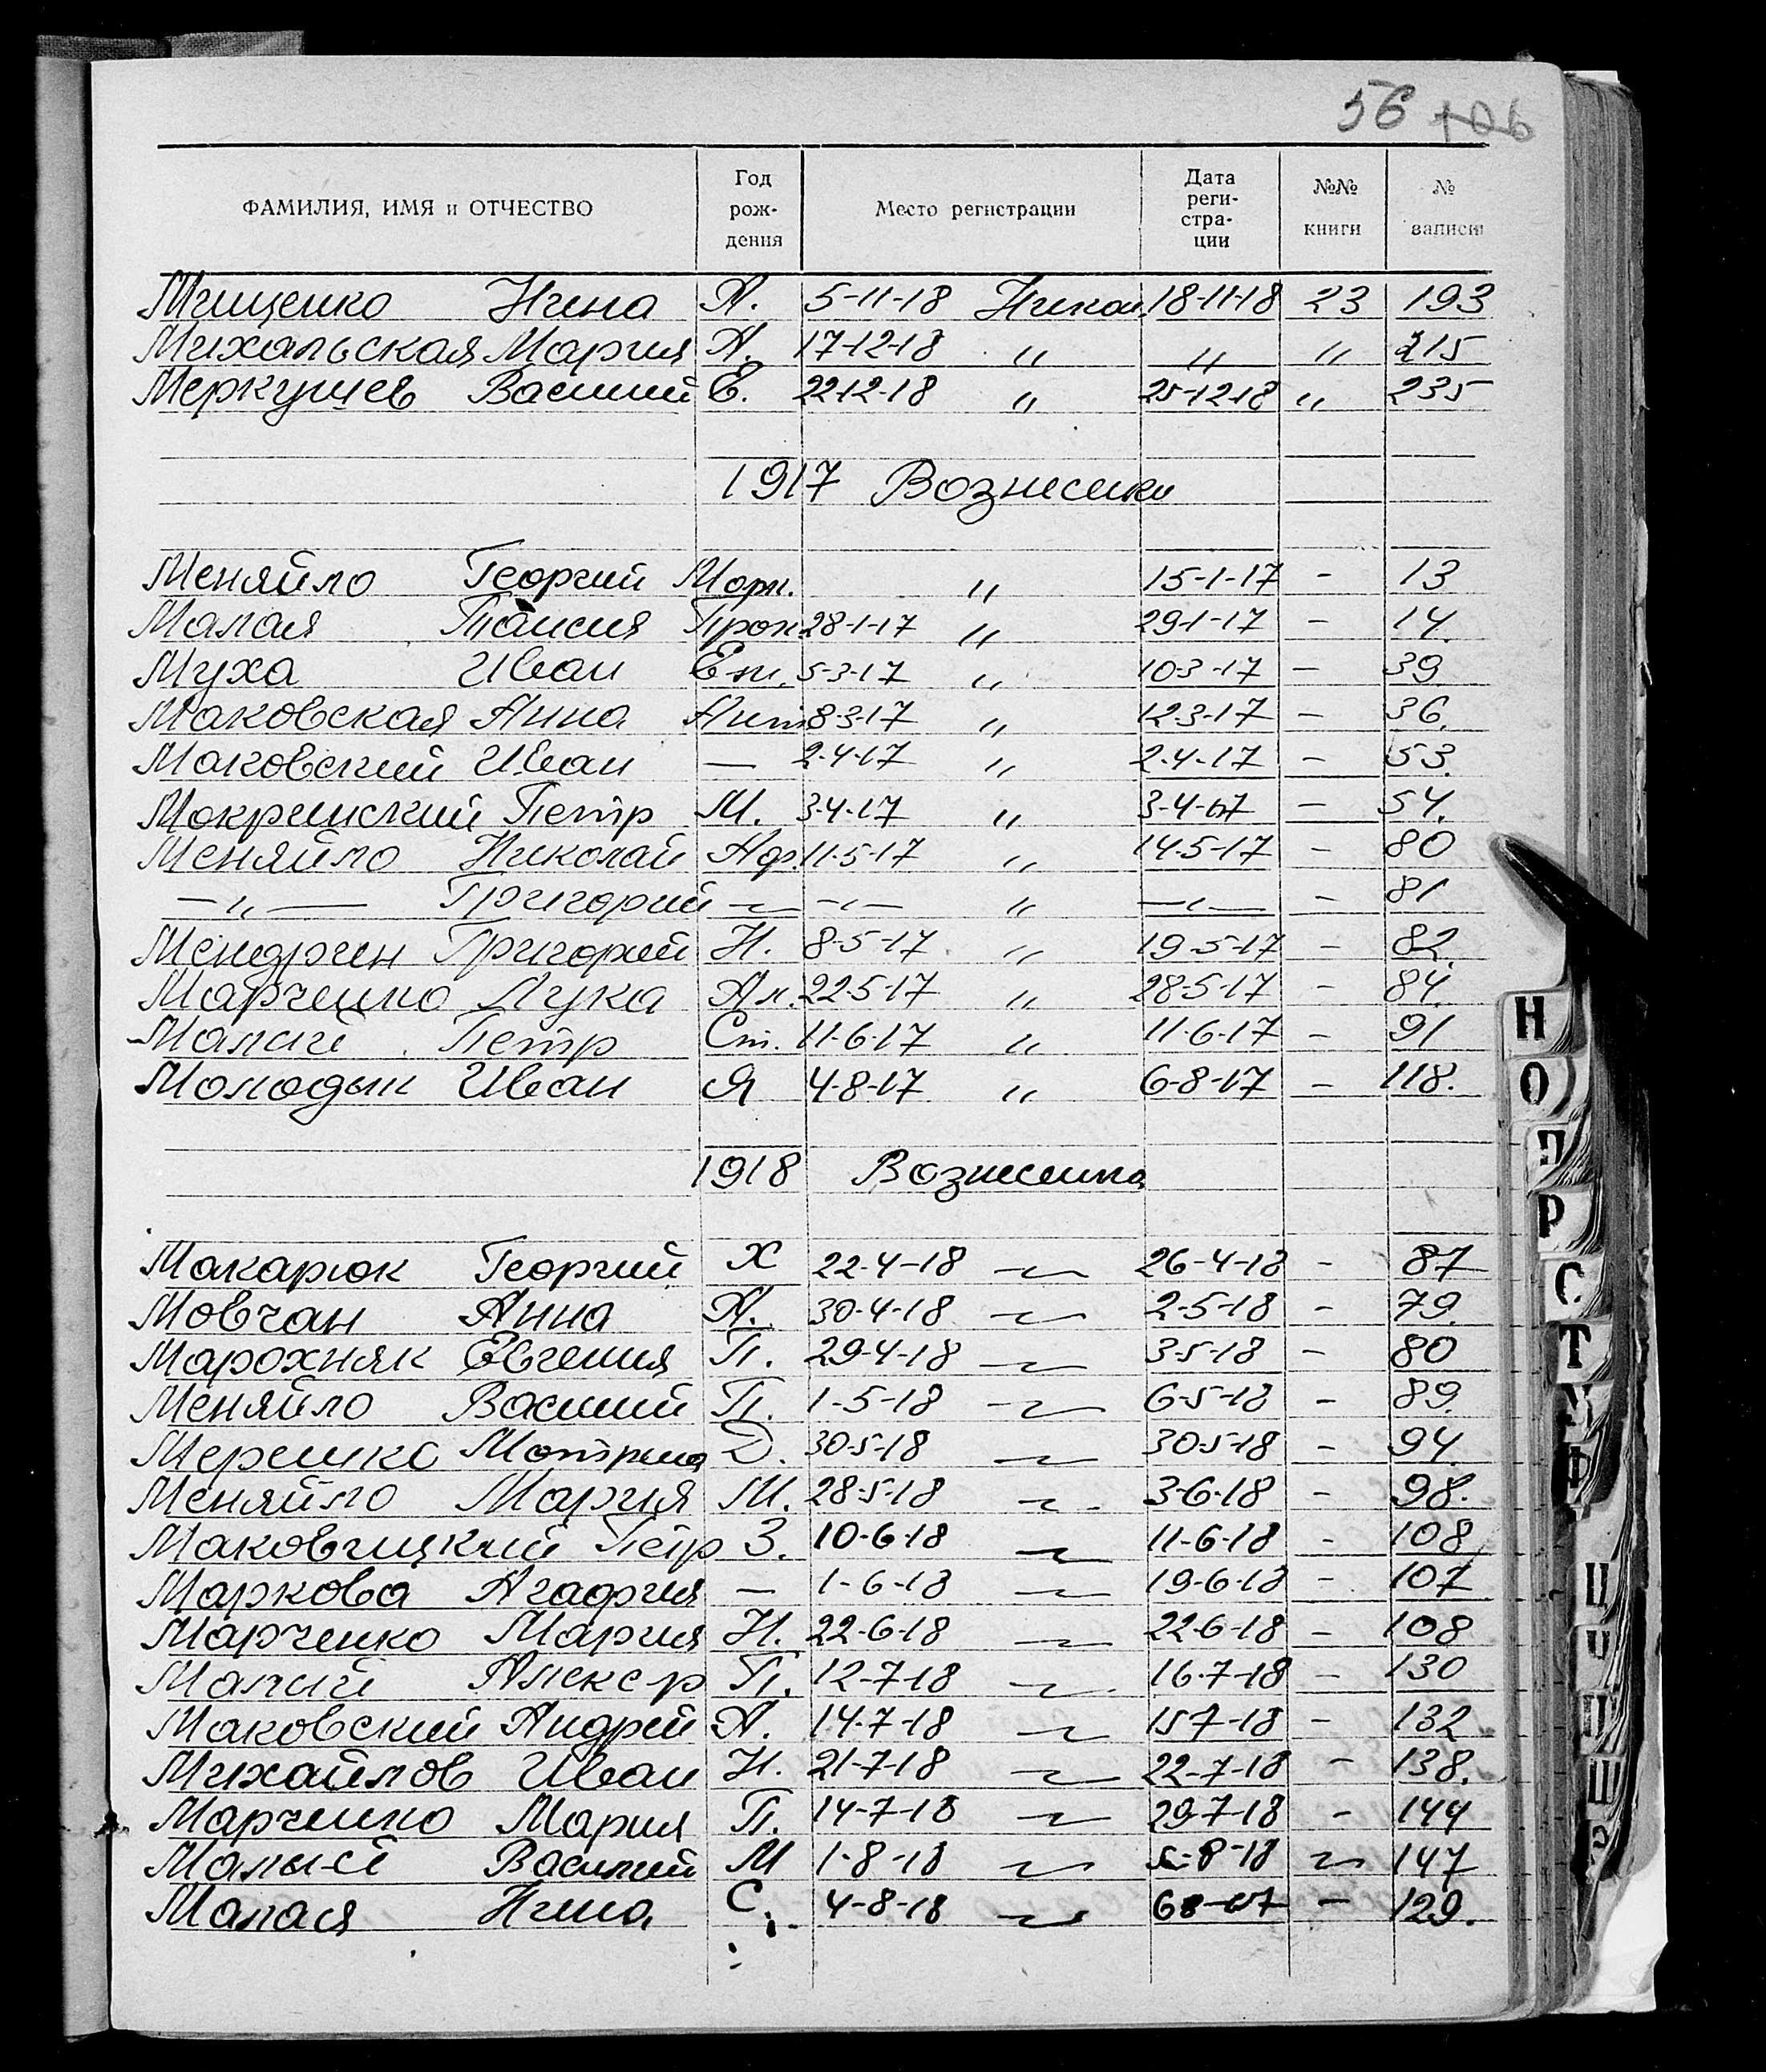 56 106
ФАМИЛИЯ, ИМЯ и ОТЧЕСТВО Год рож- дения Место регистрации Дата реги- стра- ции №№ книги № записи
Мищенко Нина А. 5-11-18 Никол. 18-11-18 23 193
Михальская Мария А. 17-12-18 " " " 215
Меркушев Василий Е. 22-12-18 " 25-12-18 " 235
1917 Вознесенка
Меняйло Георгий Марк. " 15-1-17 - 13
Малая Таисия Прок. 28-1-17 " 29-1-17 - 14.
Муха Иван Ем. 5-3-17 " 10-3-17 - 39
Маковская Анна Ант. 8-3-17 " 12-3-17 - 36.
Маковский Иван — 2-4-17 " 2-4-17 - 53.
Мокринский Петр М. 3-4-17 " 3-4-17 - 54.
Меняйло Николай Аф. 11-5-17 " 14-5-17 - 80
—"— Григорий —"— —"— " —"— - 81
Мендрин Григорий Н. 8-5-17 " 19-5-17 - 82.
Марченко Лука Ал. 22-5-17 " 28-5-17 - 84.
Малий Петр Ст. 11-6-17 " 11-6-17 - 91
Молодык Иван Я 4-8-17 " 6-8-17 - 118.
1918 Вознесенка
Макарюк Георгий Х 22-4-18 —"— 26-4-18 - 87
Мовчан Анна А. 30-4-18 —"— 2-5-18 - 79.
Марохняк Евгения П. 29-4-18 —"— 3-5-18 - 80
Меняйло Василий П. 1-5-18 —"— 6-5-18 - 89.
Мерешко Мотрина Д. 30-5-18 —"— 30-5-18 - 94.
Меняйло Мария М. 28-5-18 —"— 3-6-18 - 98.
Маковицкий Петр З. 10-6-18 —"— 11-6-18 - 108
Маркова Агафия — 1-6-18 —"— 19-6-18 - 107
Марченко Мария Н. 22-6-18 —"— 22-6-18 - 108
Малий Алекс-р П. 12-7-18 —"— 16-7-18 - 130
Маковский Андрей А. 14-7-18 —"— 15-7-18 - 132
Михайлов Иван Н. 21-7-18 —"— 22-7-18 - 138.
Марченко Мария П. 14-7-18 —"— 29-7-18 - 144
Малый Василий М 1-8-18 —"— 5-8-18 —"— 147
Малая Нина С. 4-8-18 —"— - 129.
Н
О
П
Р
С
Т
У
Ф
Ц
Ч
Ш